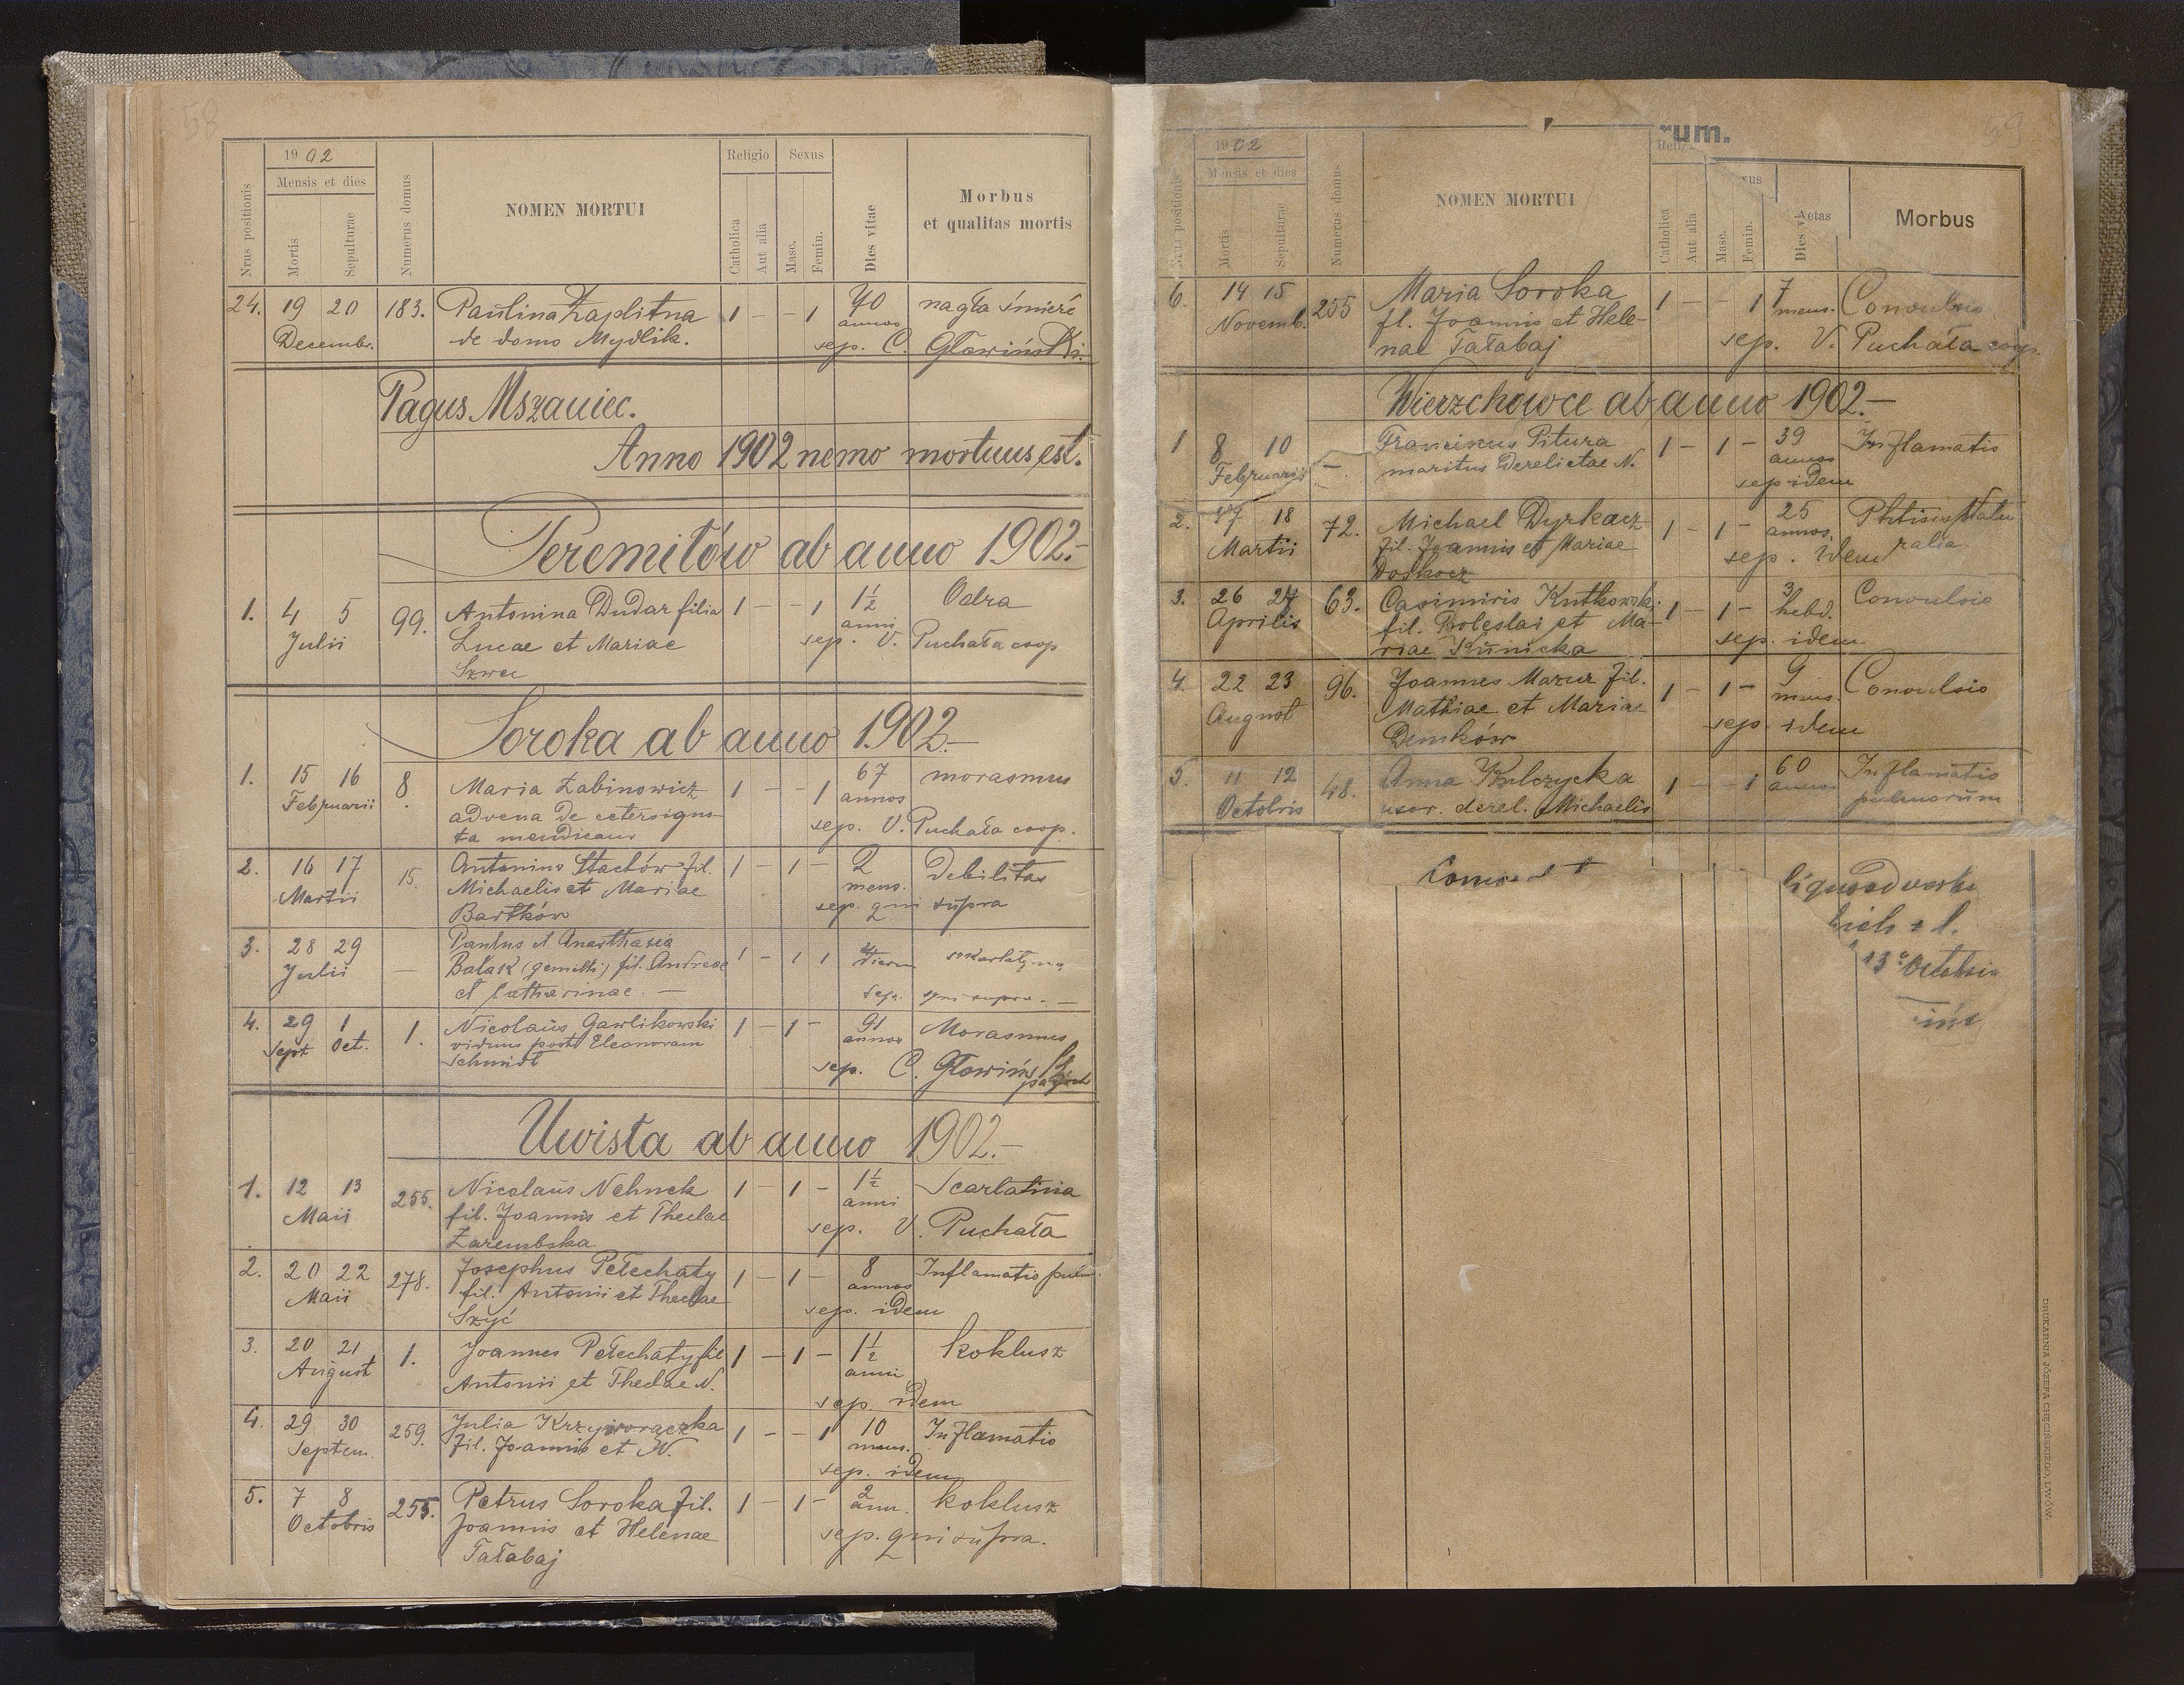 58
1902
Mensis et dies
Nrus positionis
Mortis
Sepulturae
Numerus domus
NOMEN MORTUI
Religio
Catholica
Aut alia
Sexus
Masc.
Femin.
Dies vitae
Morbus
et qualitas mortis
24. 19 20 183. Paulina Zaplitna 1 - - 1 70 nagła śmierć
Decembr. de domo Mydlik. annos
sep. C. Głowiński.
Pagus Mszaniec.
Anno 1902 nemo mortuus est.
Seremitów ab anno 1902.-
1. 4 5 99. Antonina Dudar filia 1 - - 1 1½ Odra
Julii Lucae et Mariae anni
Szwec sep. V. Puchała coop
Soroka ab anno 1902.-
1. 15 16 8. Maria Żabinowicz 1 - - 1 67 morasmus
Februarii advena de annos
ta mendicans sep. V. Puchała coop.
2. 16 17 15. Antonius Stachów fil. 1 - 1 - 2 Debilitas
Martii Michaelis et Mariae mens.
Bartków sep. qui supra
3. 28 29 - Paulus et Anasthasia
Julii Balak (gemelli) fil. Andreae 1 - 1 1
et Catharinae. — sep. qui supra. —
4. 29 1 1. Nicolaus Gawlikowski 1 - 1 - 91 Morasmus
Sept Oct. viduus post Eleonoram annos
Schmidt sep. C. Głowiński
Uwista ab anno 1902.-
1. 12 13 255. Nicolaus Nehnck 1 - 1 - 1½ Scarlatina
Maii fil. Joannis et Theclae anni
Zarembska sep. V. Puchała
2. 20 22 278. Josephus Pełechaty 1 - 1 - 8 Inflamatio pulm.
Maii fil. Antonii et Theclae annos
Szyć sep. idem
3. 20 21 1. Joannes Pełechaty fil 1 - 1 - 1½ Koklusz
August Antonii et Theclae N. anni
sep. idem
4. 29 30 259. Julia Krzyworączka 1 - - 1 10 Inflamatio
Septem. fil. Joannis et N. mens.
sep. idem
5. 7 8 255. Petrus Soroka fil. 1 - 1 - 2 koklusz
Octobris Joannis et Helenae ann.
Tałabaj sep. qui supra.
59
rum.
1902
Mensis et dies
Nrus positionis
Mortis
Sepulturae
Numerus domus
NOMEN MORTUI
Catholica
Aut alia
xus
Masc.
Femin.
Aetas
Dies v
Morbus
6. 14 15 255 Maria Soroka 1 - - 1 7 Convulsio
Novemb. fl. Joannis et Hele- mens.
nae Tałabaj sep. V. Puchała coop.
Wierzchowce ab anno 1902.-
1 8 10 - Franciscus Pitura 1 - 1 - 39 Inflamatio
Februarii maritus derelictae N. annos
sep idem
2. 17 18 72. Michael Dyrkacz 1 - 1 - 25
Martii fil. Joannis et Mariae annos.
sep. idem
3. 26 27 63. Casimiris Kutkowski 1 - 1 - 3 Convulsio
Aprilis fil. Boleslai et Ma- hebd.
riae Kunicka sep. idem
4. 22 23 96. Joannes Mazur fil. 1 - 1 - 9 Convulsio
August Mathiae et Mariae mens.
Demków sep. idem
5. 11 12 48. Anna Kulczycka 1 - - 1 60 Inflamatio
Octobris uxor. derel. Michaelis annos pulmorum
DRUKARNIA JÓZEFA CHĘCIŃSKIEGO, LWÓW